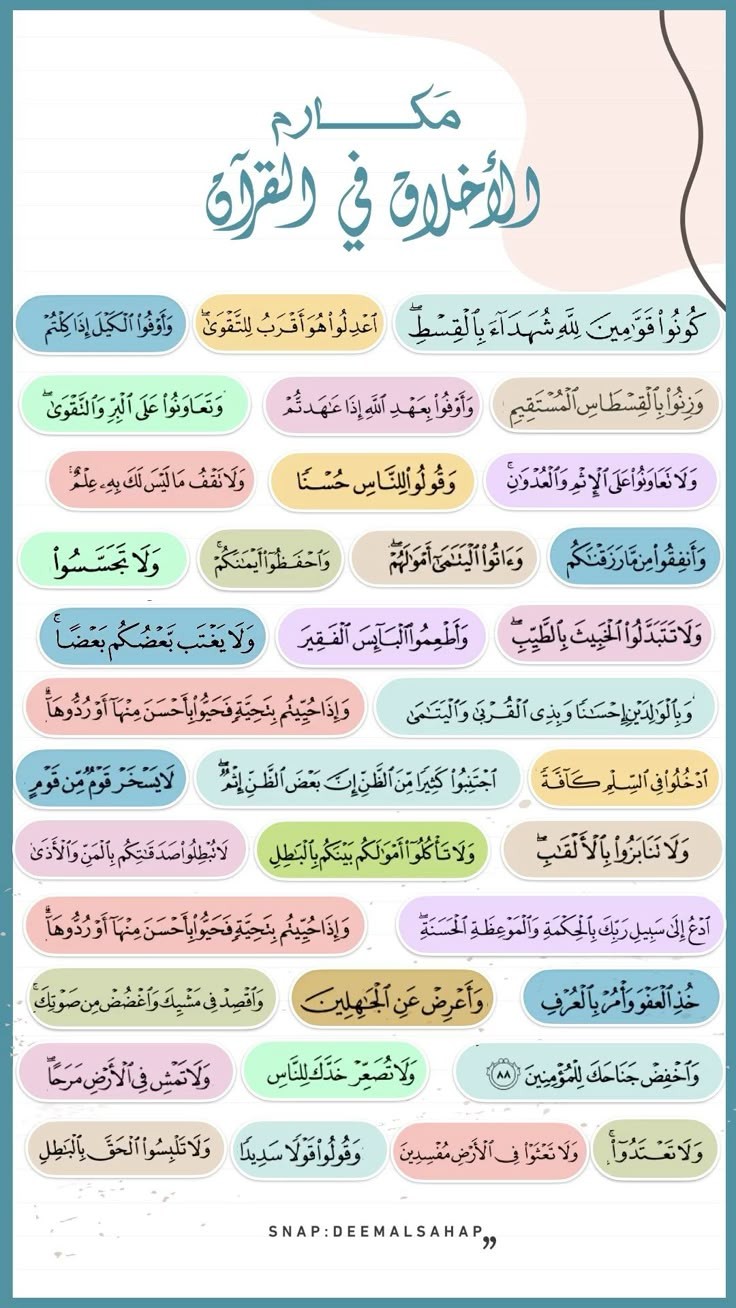 مَكـــــارم
الأخلاق في القرآن
كُونُوا۟ قَوَّٰمِينَ لِلَّهِ شُهَدَآءَ بِٱلْقِسْطِۖ
ٱعْدِلُوا۟ هُوَ أَقْرَبُ لِلتَّقْوَىٰۖ
وَأَوْفُوا۟ ٱلْكَيْلَ إِذَا كِلْتُمْ
وَزِنُوا۟ بِٱلْقِسْطَاسِ ٱلْمُسْتَقِيمِ
وَأَوْفُوا۟ بِعَهْدِ ٱللَّهِ إِذَا عَٰهَدتُّمْ
وَتَعَاوَنُوا۟ عَلَى ٱلْبِرِّ وَٱلتَّقْوَىٰۖ
وَلَا تَعَاوَنُوا۟ عَلَى ٱلْإِثْمِ وَٱلْعُدْوَٰنِۚ
وَقُولُوا۟ لِلنَّاسِ حُسْنًا
وَلَا تَقْفُ مَا لَيْسَ لَكَ بِهِۦ عِلْمٌۚ
وَأَنفِقُوا۟ مِن مَّا رَزَقْنَٰكُم
وَءَاتُوا۟ ٱلْيَتَٰمَىٰٓ أَمْوَٰلَهُمْۖ
وَٱحْفَظُوٓا۟ أَيْمَٰنَكُمْۚ
وَلَا تَجَسَّسُوا۟
وَلَا تَتَبَدَّلُوا۟ ٱلْخَبِيثَ بِٱلطَّيِّبِۖ
وَأَطْعِمُوا۟ ٱلْبَآئِسَ ٱلْفَقِيرَ
وَلَا يَغْتَب بَّعْضُكُم بَعْضًاۚ
وَبِٱلْوَٰلِدَيْنِ إِحْسَٰنًا وَبِذِى ٱلْقُرْبَىٰ وَٱلْيَتَٰمَىٰ
وَإِذَا حُيِّيتُم بِتَحِيَّةٍ فَحَيُّوا۟ بِأَحْسَنَ مِنْهَآ أَوْ رُدُّوهَآۗ
ٱدْخُلُوا۟ فِى ٱلسِّلْمِ كَآفَّةً
ٱجْتَنِبُوا۟ كَثِيرًا مِّنَ ٱلظَّنِّ إِنَّ بَعْضَ ٱلظَّنِّ إِثْمٌۖ
لَا يَسْخَرْ قَوْمٌ مِّن قَوْمٍ
وَلَا تَنَابَزُوا۟ بِٱلْأَلْقَٰبِۖ
وَلَا تَأْكُلُوٓا۟ أَمْوَٰلَكُم بَيْنَكُم بِٱلْبَٰطِلِ
لَا تُبْطِلُوا۟ صَدَقَٰتِكُم بِٱلْمَنِّ وَٱلْأَذَىٰ
ٱدْعُ إِلَىٰ سَبِيلِ رَبِّكَ بِٱلْحِكْمَةِ وَٱلْمَوْعِظَةِ ٱلْحَسَنَةِۖ
وَإِذَا حُيِّيتُم بِتَحِيَّةٍ فَحَيُّوا۟ بِأَحْسَنَ مِنْهَآ أَوْ رُدُّوهَآۗ
خُذِ ٱلْعَفْوَ وَأْمُرْ بِٱلْعُرْفِ
وَأَعْرِضْ عَنِ ٱلْجَٰهِلِينَ
وَٱقْصِدْ فِى مَشْيِكَ وَٱغْضُضْ مِن صَوْتِكَۚ
وَٱخْفِضْ جَنَاحَكَ لِلْمُؤْمِنِينَ ٨٨
وَلَا تُصَعِّرْ خَدَّكَ لِلنَّاسِ
وَلَا تَمْشِ فِى ٱلْأَرْضِ مَرَحًاۖ
وَلَا تَعْتَدُوٓا۟ۚ
وَلَا تَعْثَوْا۟ فِى ٱلْأَرْضِ مُفْسِدِينَ
وَقُولُوا۟ قَوْلًا سَدِيدًا
وَلَا تَلْبِسُوا۟ ٱلْحَقَّ بِٱلْبَٰطِلِ
SNAP:DEEMALSAHAP